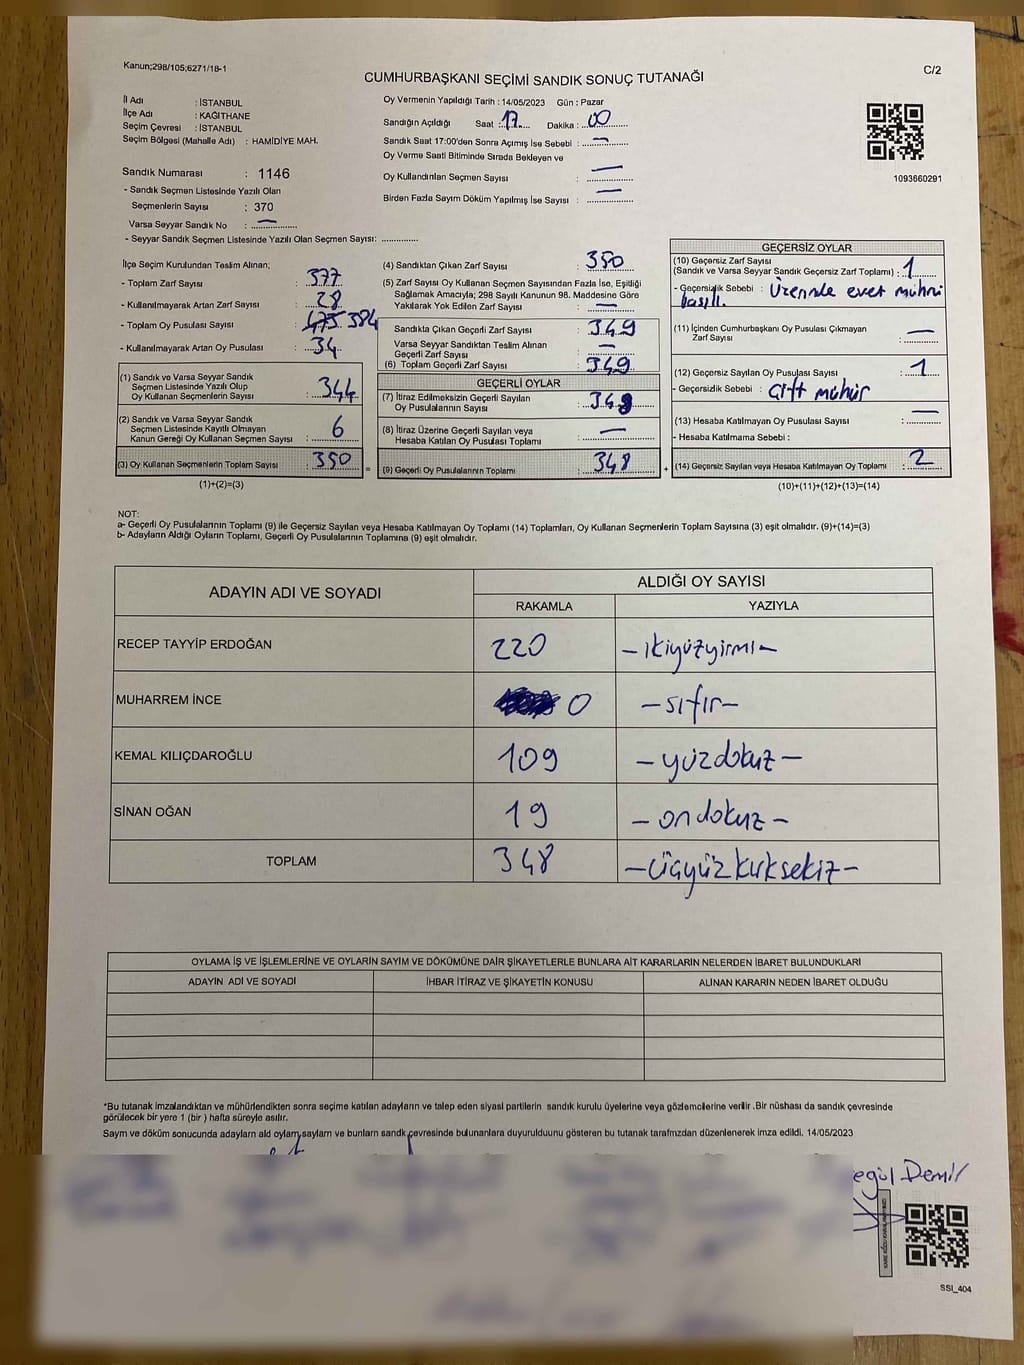 Kanun;298/105;6271/18-1
C/2
CUMHURBAŞKANI SEÇİMİ SANDIK SONUÇ TUTANAĞI
İl Adı : İSTANBUL
İlçe Adı : KAĞITHANE
Seçim Çevresi : İSTANBUL
Seçim Bölgesi (Mahalle Adı) : HAMİDİYE MAH.
Sandık Numarası : 1146
- Sandık Seçmen Listesinde Yazılı Olan
Seçmenlerin Sayısı : 370
Varsa Seyyar Sandık No : —
- Seyyar Sandık Seçmen Listesinde Yazılı Olan Seçmen Sayısı: ..............
Oy Vermenin Yapıldığı Tarih : 14/05/2023 Gün : Pazar
Sandığın Açıldığı Saat : 17 Dakika : 00
Sandık Saat 17:00'den Sonra Açılmış İse Sebebi : —
Oy Verme Saati Bitiminde Sırada Bekleyen ve
Oy Kullandırılan Seçmen Sayısı : —
Birden Fazla Sayım Döküm Yapılmış İse Sayısı : —
1093660291
İlçe Seçim Kurulundan Teslim Alınan;
- Toplam Zarf Sayısı : 377
- Kullanılmayarak Artan Zarf Sayısı : 28
- Toplam Oy Pusulası Sayısı : 384
- Kullanılmayarak Artan Oy Pusulası : 34
(1) Sandık ve Varsa Seyyar Sandık
Seçmen Listesinde Yazılı Olup
Oy Kullanan Seçmenlerin Sayısı : 344
(2) Sandık ve Varsa Seyyar Sandık
Seçmen Listesinde Kayıtlı Olmayan
Kanun Gereği Oy Kullanan Seçmen Sayısı : 6
(3) Oy Kullanan Seçmenlerin Toplam Sayısı : 350
(1)+(2)=(3)
(4) Sandıktan Çıkan Zarf Sayısı : 350
(5) Zarf Sayısı Oy Kullanan Seçmen Sayısından Fazla İse, Eşitliği
Sağlamak Amacıyla; 298 Sayılı Kanunun 98. Maddesine Göre
Yakılarak Yok Edilen Zarf Sayısı : —
Sandıkta Çıkan Geçerli Zarf Sayısı : 349
Varsa Seyyar Sandıktan Teslim Alınan
Geçerli Zarf Sayısı : —
(6) Toplam Geçerli Zarf Sayısı : 349
GEÇERLİ OYLAR
(7) İtiraz Edilmeksizin Geçerli Sayılan
Oy Pusulalarının Sayısı : 348
(8) İtiraz Üzerine Geçerli Sayılan veya
Hesaba Katılan Oy Pusulası Toplamı : —
= (9) Geçerli Oy Pusulalarının Toplamı : 348 +
GEÇERSİZ OYLAR
(10) Geçersiz Zarf Sayısı
(Sandık ve Varsa Seyyar Sandık Geçersiz Zarf Toplamı) : 1
- Geçersizlik Sebebi : Üzerinde evet mührü
basılı.
(11) İçinden Cumhurbaşkanı Oy Pusulası Çıkmayan
Zarf Sayısı : —
(12) Geçersiz Sayılan Oy Pusulası Sayısı : 1
- Geçersizlik Sebebi : çift mühür
(13) Hesaba Katılmayan Oy Pusulası Sayısı : —
- Hesaba Katılmama Sebebi :
(14) Geçersiz Sayılan veya Hesaba Katılmayan Oy Toplamı : 2
(10)+(11)+(12)+(13)=(14)
NOT:
a- Geçerli Oy Pusulalarının Toplamı (9) ile Geçersiz Sayılan veya Hesaba Katılmayan Oy Toplamı (14) Toplamları, Oy Kullanan Seçmenlerin Toplam Sayısına (3) eşit olmalıdır. (9)+(14)=(3)
b- Adayların Aldığı Oyların Toplamı, Geçerli Oy Pusulalarının Toplamına (9) eşit olmalıdır.
ADAYIN ADI VE SOYADI ALDIĞI OY SAYISI
RAKAMLA YAZIYLA
RECEP TAYYİP ERDOĞAN 220 – ikiyüzyirmi –
MUHARREM İNCE 0 – sıfır –
KEMAL KILIÇDAROĞLU 109 – yüzdokuz –
SİNAN OĞAN 19 – ondokuz –
TOPLAM 348 – üçyüzkırksekiz –
OYLAMA İŞ VE İŞLEMLERİNE VE OYLARIN SAYIM VE DÖKÜMÜNE DAİR ŞİKAYETLERLE BUNLARA AİT KARARLARIN NELERDEN İBARET BULUNDUKLARI
ADAYIN ADI VE SOYADI İHBAR İTİRAZ VE ŞİKAYETİN KONUSU ALINAN KARARIN NEDEN İBARET OLDUĞU
*Bu tutanak imzalandıktan ve mühürlendikten sonra seçime katılan adayların ve talep eden siyasi partilerin sandık kurulu üyelerine veya gözlemcilerine verilir .Bir nüshası da sandık çevresinde
görülecek bir yere 1 (bir ) hafta süreyle asılır.
Sayım ve döküm sonucunda adayların ald oyların sayıların ve bunların sandk çevresinde bulunanlara duyurulduunu gösteren bu tutanak tarafmzdan düzenlenerek imza edildi. 14/05/2023
egül Demir
SSI_404